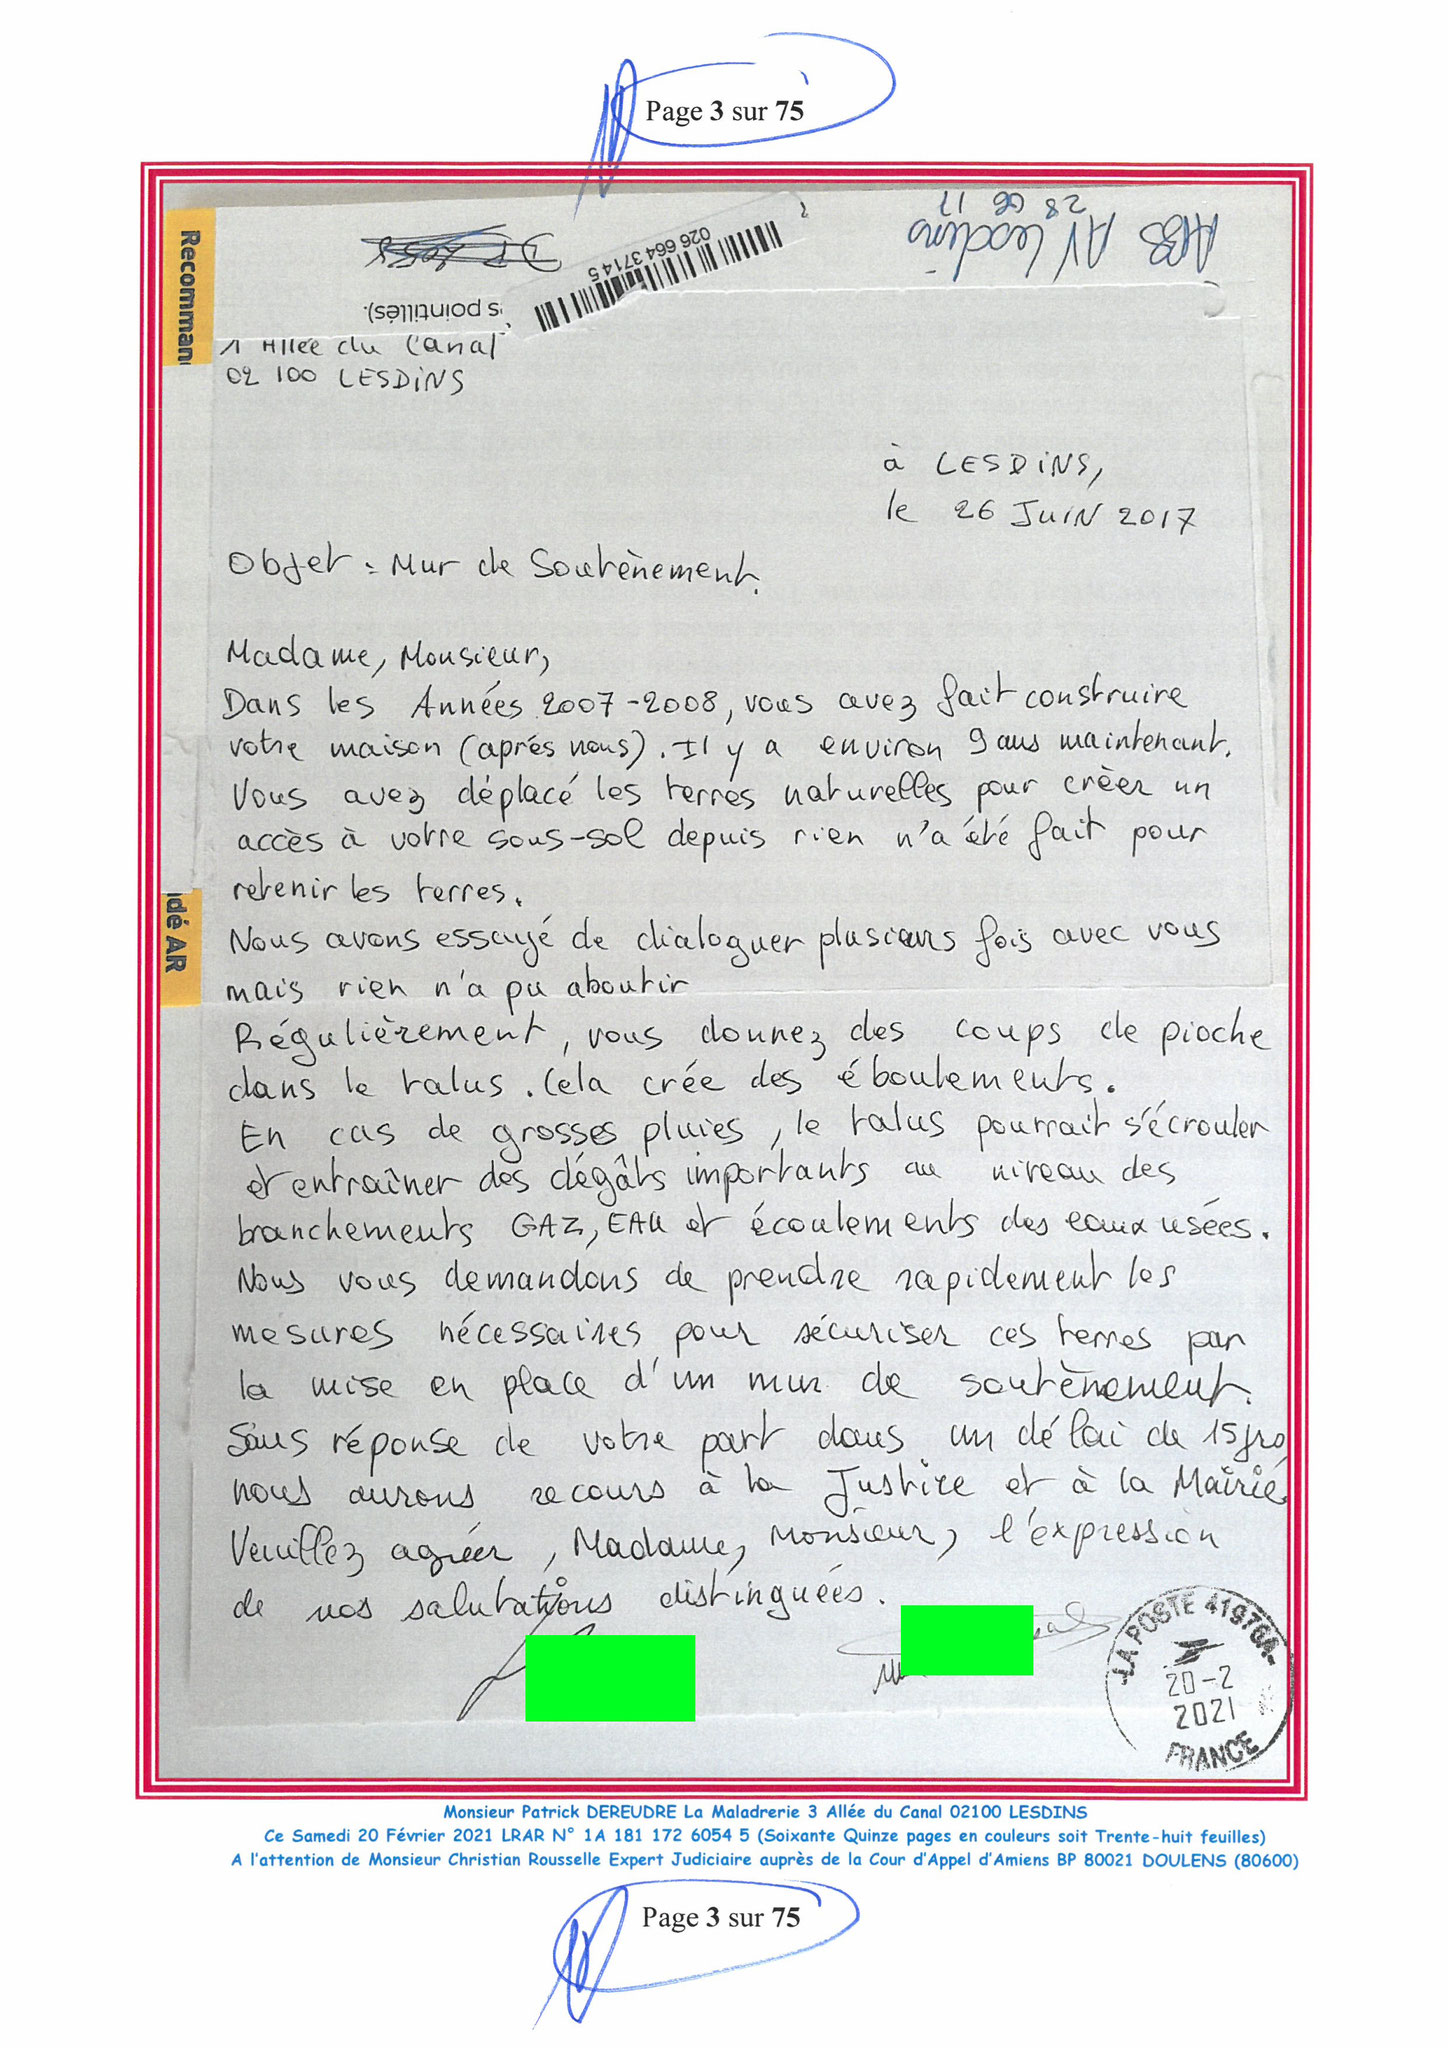 Page 3 sur 75
ABS AV Lesdins
28 06 17
026 664 3714 5
s pointillés).
Recomman
1 Allée du Canal
02 100 LESDINS
à LESDINS,
le 26 JUIN 2017
Objet : Mur de Soutènement.
Madame, Monsieur,
Dans les Années 2007-2008, vous avez fait construire
votre maison (après nous). Il y a environ 9 ans maintenant.
Vous avez déplacé les terres naturelles pour créer un
accès à votre sous-sol depuis rien n'a été fait pour
retenir les terres.
idé AR
Nous avons essayé de dialoguer plusieurs fois avec vous
mais rien n'a pu aboutir
Régulièrement, vous donnez des coups de pioche
dans le talus. Cela crée des éboulements.
En cas de grosses pluies, le talus pourrait s'écrouler
et entraîner des dégâts importants au niveau des
branchements GAZ, EAU et écoulements des eaux usées.
Nous vous demandons de prendre rapidement les
mesures nécessaires pour sécuriser ces terres par
la mise en place d'un mur de soutènement.
Sans réponse de votre part dans un délai de 15 jrs
nous aurons recours à la Justice et à la Mairie
Veuillez agréer, Madame, Monsieur, l'expression
de nos salutations distinguées.
LA POSTE 41970A
20-2
2021
FRANCE
Monsieur Patrick DEREUDRE La Maladrerie 3 Allée du Canal 02100 LESDINS
Ce Samedi 20 Février 2021 LRAR N° 1A 181 172 6054 5 (Soixante Quinze pages en couleurs soit Trente-huit feuilles)
A l'attention de Monsieur Christian Rousselle Expert Judiciaire auprès de la Cour d'Appel d'Amiens BP 80021 DOULENS (80600)
Page 3 sur 75